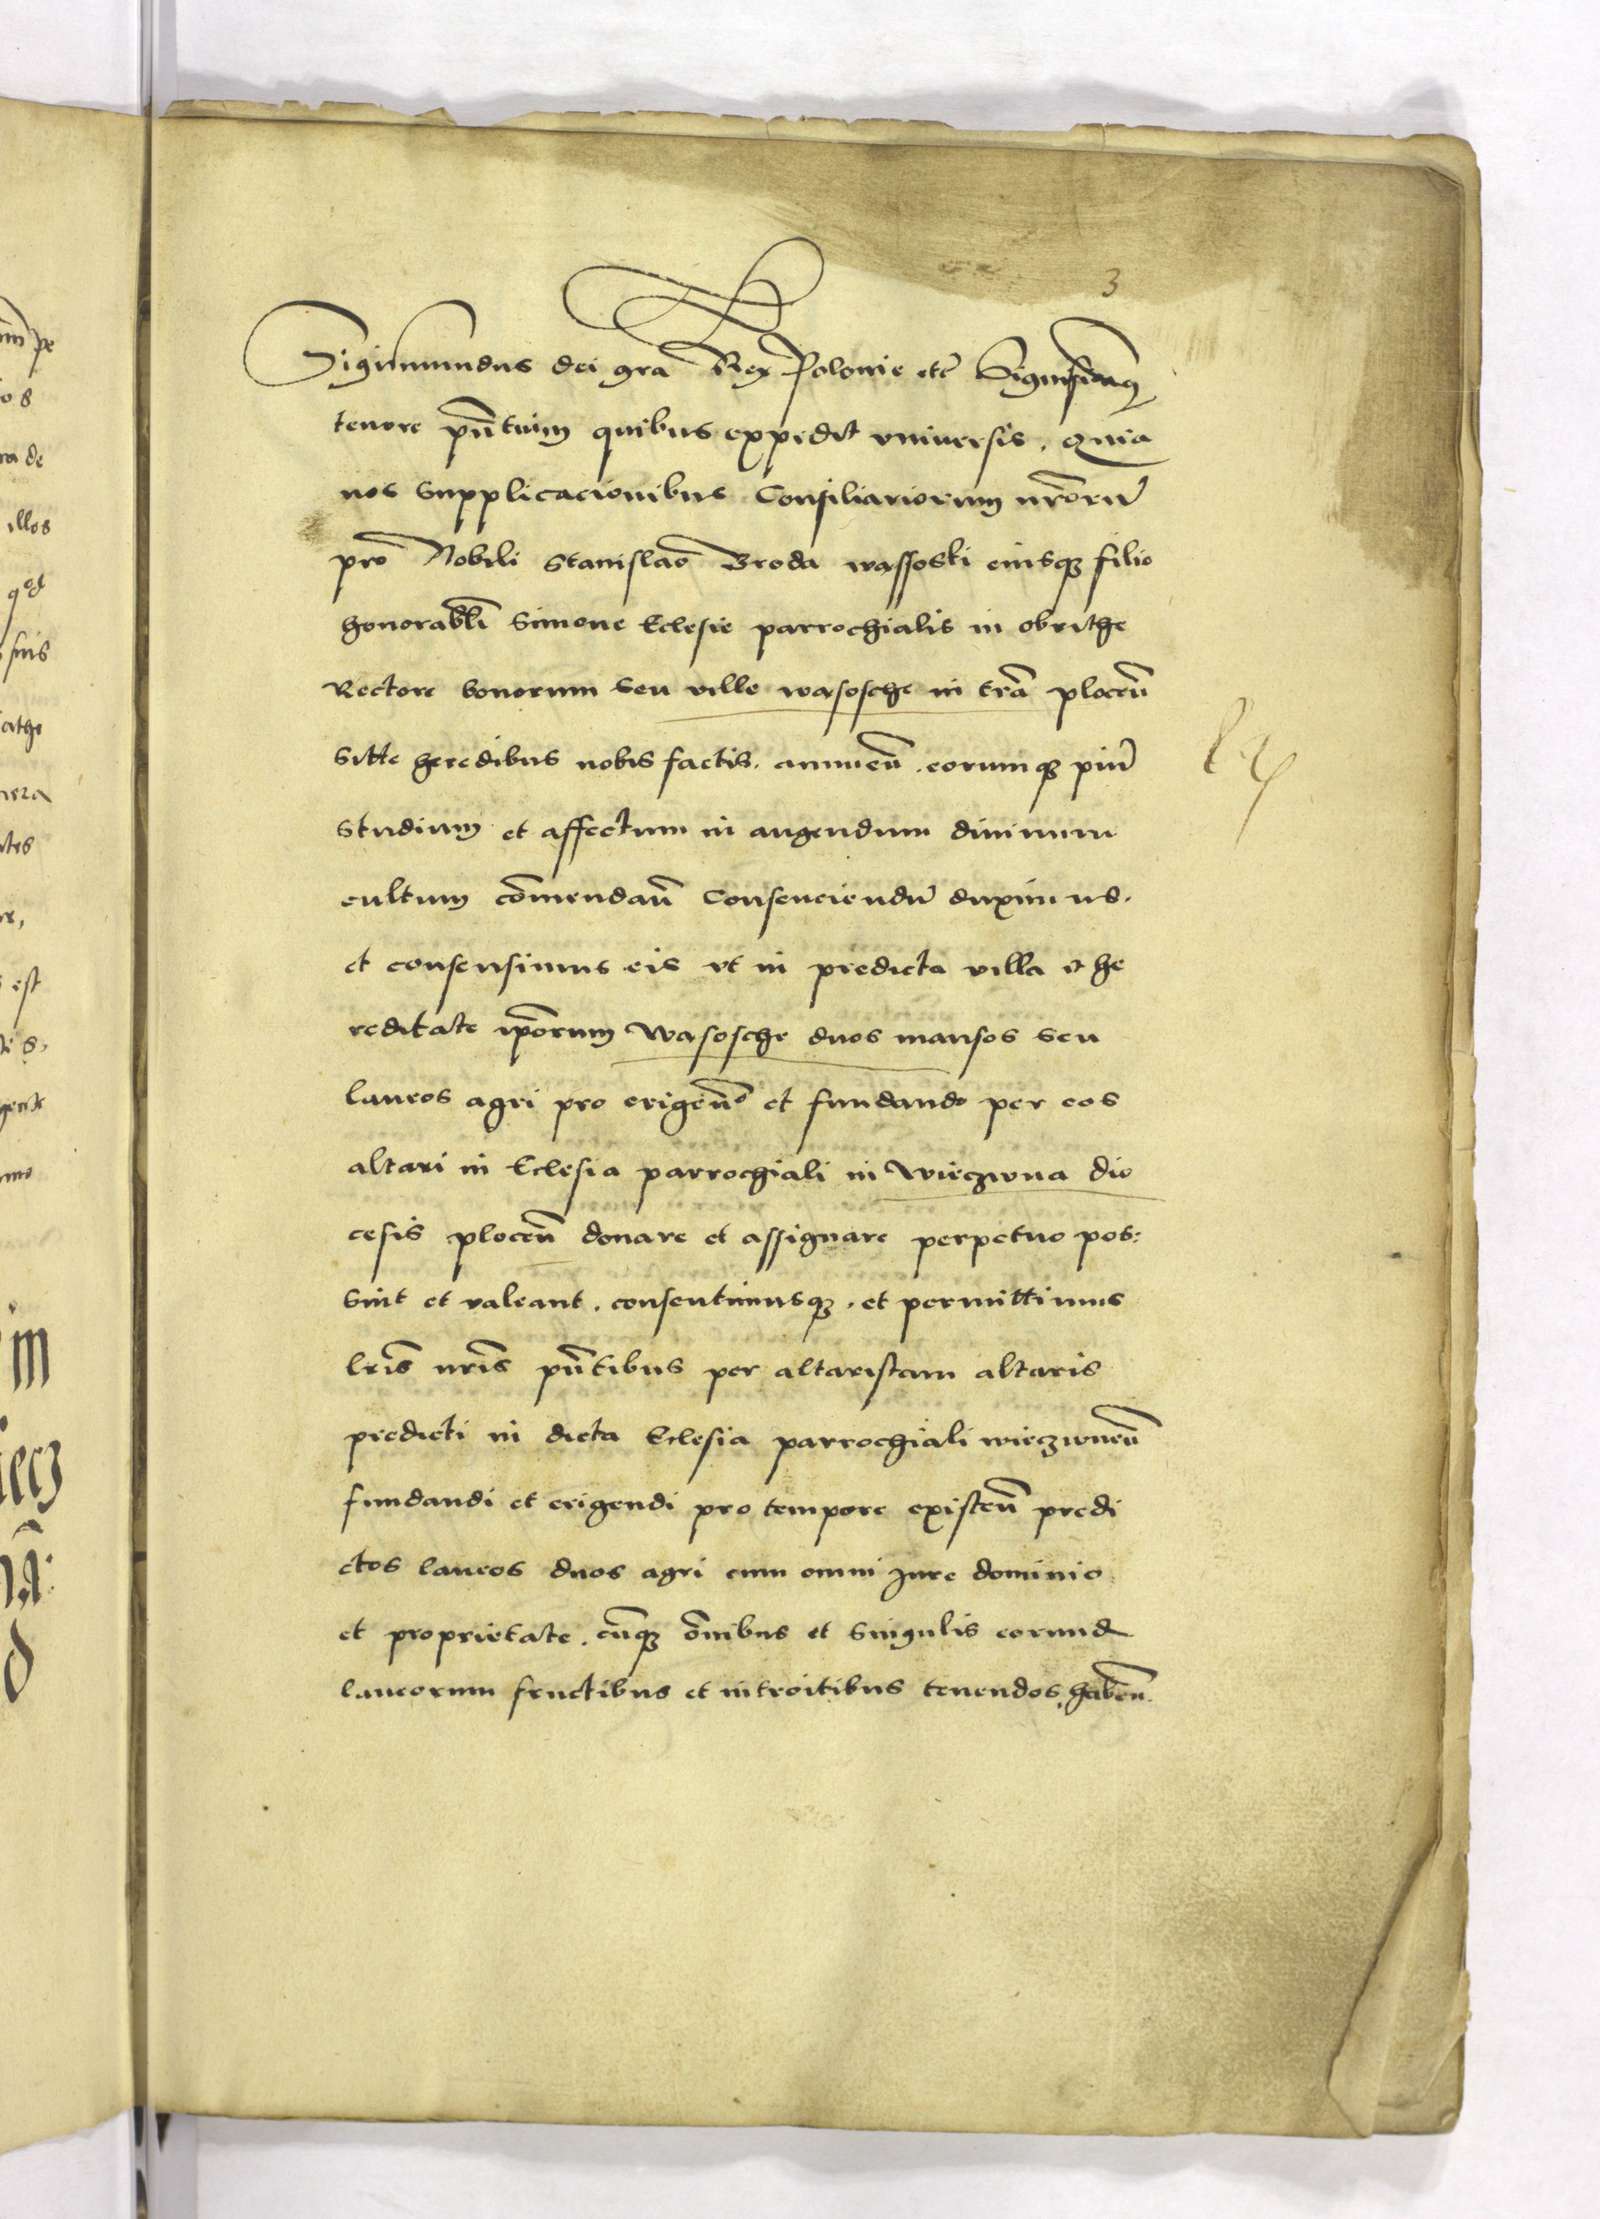 3
Sigismundus dei gra Rex Polonie etc̃ Significamq
tenore pñtium quibus expedit vniversis. Quia
nos supplicacionibus Consiliariorum nr̃orũ
pro Nobili Stanislao Broda wassoski eiusqз filio
honorabli Simone Eclesie parrochialis in obrithe
Rectore bonorum seu ville wasosche in tr̃a ploceñ
sitte heredibus nobis factis. annueñ. eorumqз piũ
studium et affectum in augendum diuinum
cultum cõmendañ Consenciendũ duximus.
et consensimus eis vt in predicta villa et he
reditate ip̃orum wasosche duos mansos seu
laneos agri pro erigeñº et fundando per eos
altari in Eclesia parrochiali in wieczwna dio
cesis ploceñ donare et assignare perpetuo pos:
sint et valeant. consentimusqз. et permittimus
lr̃is nr̃is pñtibus per altaristam altaris
predicti in dicta Eclesia parrochiali wieczwneñ
fundandi et erigendi pro tempore existeñ predi
ctos laneos duos agri cum omni Jure dominio
et proprietate. cũqз õnibus et singulis eorund
laneorum fructibus et introitibus tenendos, habeñ.